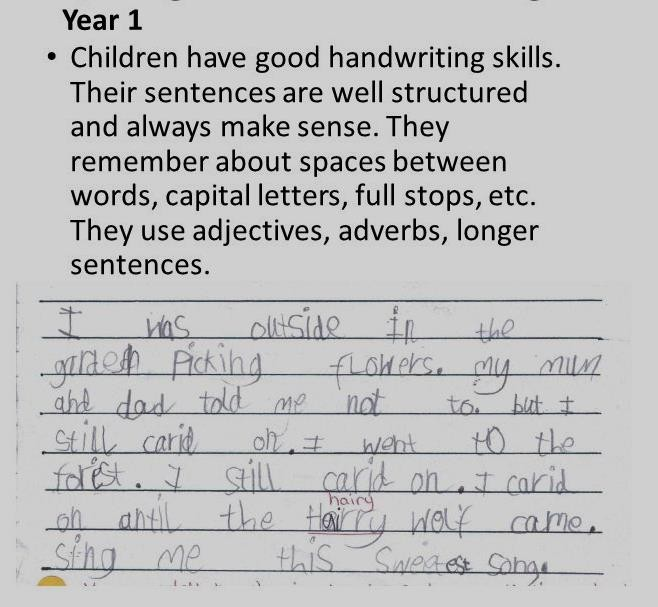 Year 1
• Children have good handwriting skills.
Their sentences are well structured
and always make sense. They
remember about spaces between
words, capital letters, full stops, etc.
They use adjectives, adverbs, longer
sentences.
I was outside in the
garden Picking flowers. my mum
and dad told me not to. but I
still carid on. I went to the
forest. I still carid on. I carid
hairy
on antil the Hairry wolf came.
sing me this sweetest song.